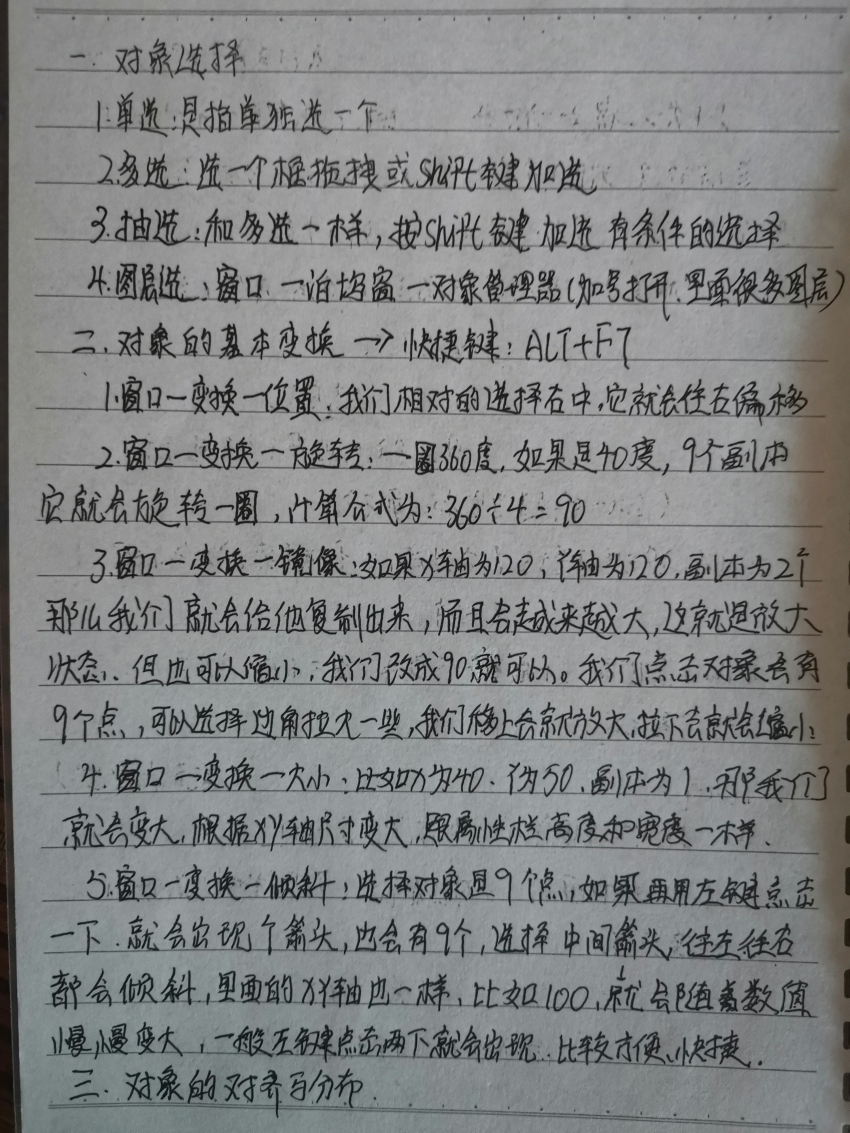 一. 对象选择
1.单选:是指单独选一个
2.多选:选一个框拖拽或Shift键加选
3.抽选:和多选一样,按Shift键加选 有条件的选择
4.图层选:窗口一泊坞窗一对象管理器(加号打开.里面很多图层)
二.对象的基本变换→快捷键:ALT+F7
1.窗口一变换一位置:我们相对的选择右中,它就会往右偏移
2.窗口一变换一旋转:一圈360度,如果是40度,9个副本
它就会旋转一圈,计算公式为:360÷4=90
3.窗口一变换一镜像:如果X轴为120,Y轴为120,副本为2个
那么我们就会给他复制出来,而且会越来越大,这就是放大
状态、但也可以缩小,我们改成90就可以。我们点击对象会有
9个点,可以选择边角拉大一些,我们移上会就放大,拉下去就会缩小;
4.窗口一变换一大小:比如X为40.Y为50,副本为1.那我们
就会变大,根据XY轴尺寸变大,跟属性栏高度和宽度一样.
5.窗口一变换一倾斜:选择对象是9个点,如果再用左键点击
一下.就会出现个箭头,也会有9个,选择中间箭头,往左往右
都会倾斜,里面的XY轴也一样,比如100,就会随着数值
慢慢变大,一般左键点击两下就会出现.比较方便、快捷.
三.对象的对齐与分布.